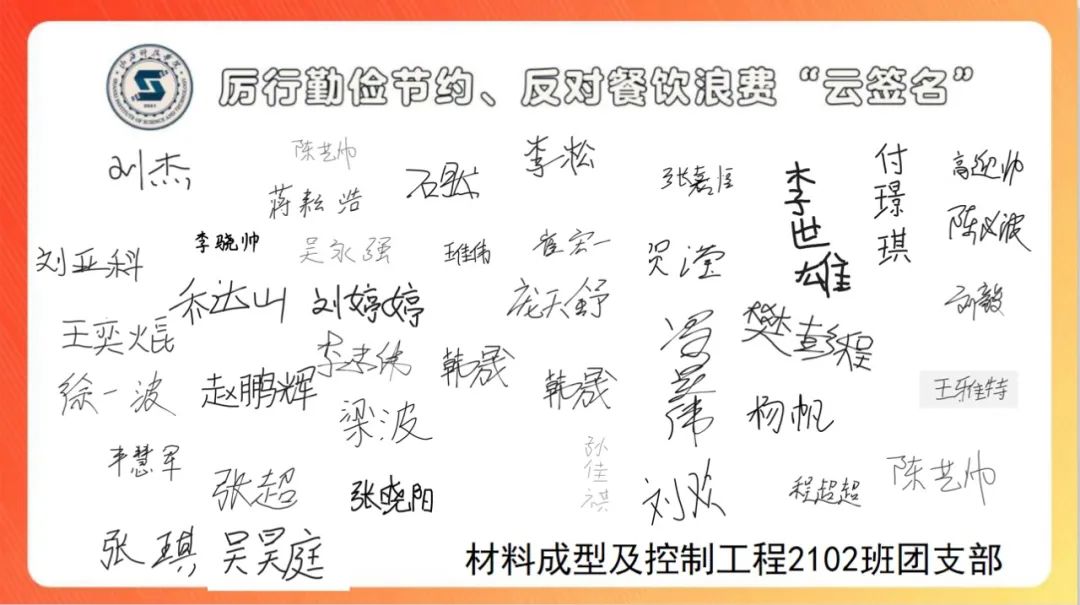 厉行勤俭节约、反对餐饮浪费“云签名”
刘杰
陈艺帅
李淞
张嘉恒
李世雄
付璟琪
高迎帅
蒋耘浩
石照杰
陈必波
刘亚科
李骁帅
吴永强
王维伟
崔宏一
贺滢
乔达山
刘婷婷
庞天舒
刘毅
王奕焜
樊彭程
韩晟
韩晟
徐一波
赵鹏辉
王雅特
梁波
杨帆
丰慧军
张超
张晓阳
孙佳祺
刘欢
程超超
陈艺帅
张琪
吴昊庭
材料成型及控制工程2102班团支部